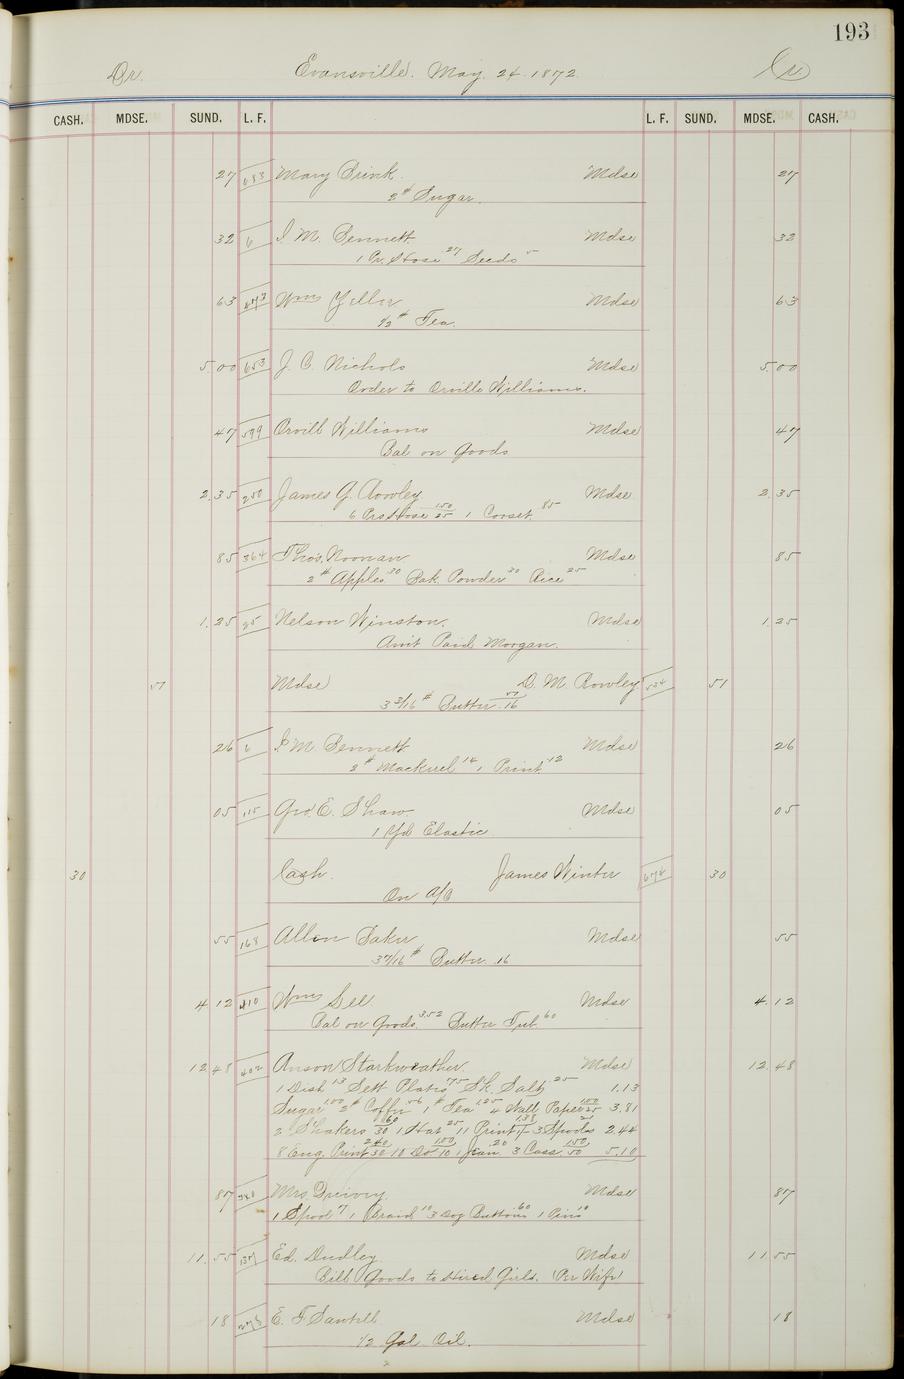 193
Dr. Evansville. May. 24. 1872. Cr
CASH. MDSE. SUND. L. F. L. F. SUND. MDSE. CASH.
27 683 Mary Brink. Mdse 27
2# Sugar.
32 6 I. M. Bennett. Mdse 32
1 Pr. Hose 27 Seeds 5
63 Wms Yeller Mdse 63
1/2# Tea.
5.00 653 J. C. Nichols Mdse 5.00
Order to Orville Williams.
47 599 Orvill Williams Mdse 47
Bal on Goods
2.35 250 James G. Rowley Mdse 2.35
6 Prs Hose 1.50/25 1 Corset. 85
85 364 Thos. Noonan Mdse 85
2# Apples 30 Bak. Powder 30 Rice 25
1.25 25 Nelson Winston. Mdse 1.25
Amt Paid Morgan.
51 Mdse D. M. Rowley 534 51
3 3/16# Butter. 51/16
26 6 I. M. Bennett Mdse 26
2# Mackerel 14 1 Print 12
05 115 Geo. E. Shaw. Mdse 05
1 Yd Elastic
30 Cash. James Winter 674 30
On A/C
55 168 Allen Baker Mdse 55
3 7/16# Butter. 16
4.12 410 Wms Lee. Mdse 4.12
Bal on Goods. 3.52 Butter Tub. 60
12.48 402 Anson Starkweather. Mdse 12.48
1 Dish 13 Sett Plates 75 Sk. Salt 25 1.13
Sugar 1.00 2# Coffee 56 1# Tea 1.25 4 Wall Paper 1.00/25 3.81
2 Shakers 60/30 1 Hat 25 11 Print 3 Spools 21 2.44
8 Eng. Print 2.40/30 10 Do 1.00/10 1 Jean. 20 3 Cass. 1.50/50 5.10
87 340 Mrs. Mdse 87
1 Spool 7 1 Braid 10 3 Doz Buttons 60 1 Pins 10
11.55 137 Ed. Dudley. Mdse 11.55
Bill Goods to Hired Girls. (Per Wife)
18 E. F. Sawtell Mdse 18
1/2 Gal Oil.